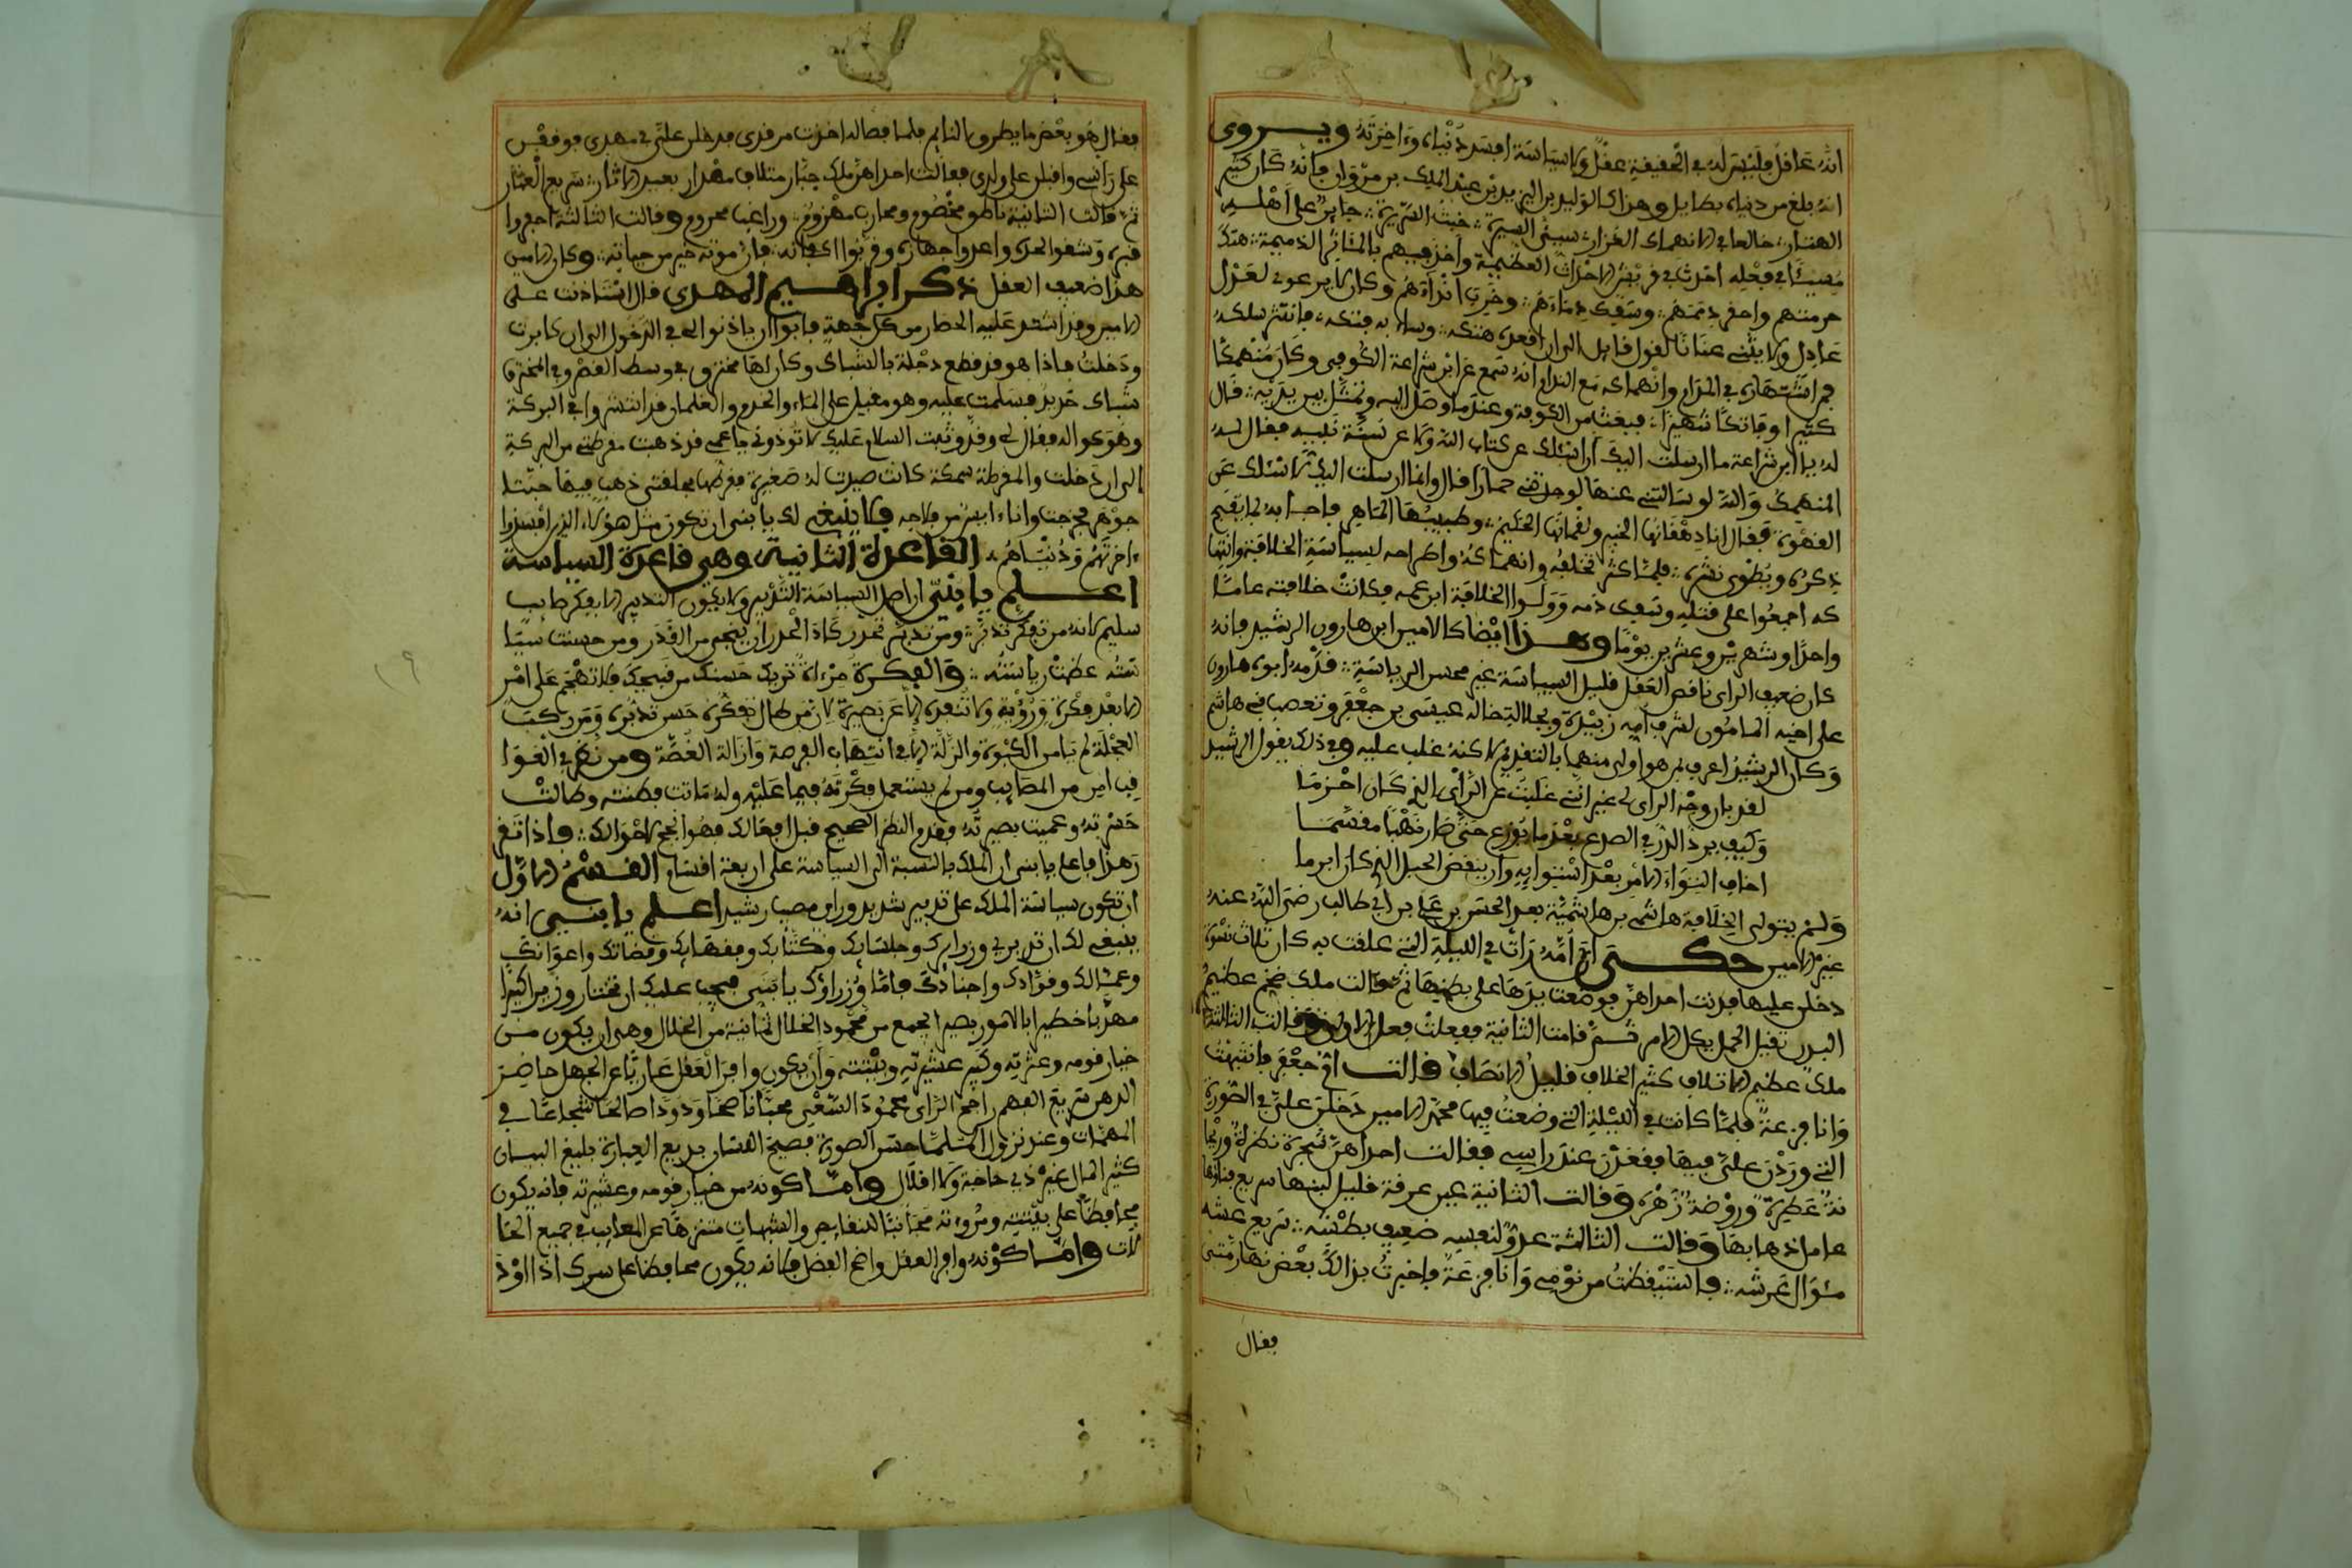 انه عاقل فليس له في الحقيقة عقل ولا سياسة افسد دنياه وءاخرته ويروى
انه بلغ من دنياه بطايل وهذا كالوليد بن اليزيد بن عبد الملك بن مروان فانه كان كثير
حرمتهم واخفر ذمتهم وسفك دماءهم وخرب انداءهم وكان لا يرعوي لعذل
عاذل ولا يثني عنانا لقول قايل الى ان
في اشتهاره في المدام وانهماكه مع الندام انه سمع عن ابن شراعة الكوفي وكان منهمكا
كثيرا وفاتكا شهيرا فبعث من الكوفة وعندما وصل اليه وتمثل بين يديه قال
له يا ابن شراعة ما ارسلت اليك ان اسئلك عن كتاب الله ولا عن سنة نبيه فقال له
المنهمك والله لو سالتني عنها لوجدتني حمارا قال وانما ارسلت اليك لاسئلك عن
القهوة فقال انا دهقانها الخبير ولقمانها الحكيم وطبيبها الماهر فاجابه بما يقبح
ذكره ويطوى نشره فلما كثر تخلفه وانهماكه واطراحه لسياسة الخلافة وابتها
كه اجمعوا على قتله وسفك دمه وولوا الخلافة ابن عمه فكانت خلافته عاما
واحدا وشهرين وعشرين يوما وهذا ايضا كالامين ابن هارون الرشيد فانه
كان ضعيف الراي ناقص العقل قليل السياسة غير محسن الرياسة قدمه ابوه هارون
على اخيه المامون لشرف امه زبيدة وبجلالة خاله عيسى بن جعفر وتعصب بني هاشم
وكان الرشيد اعرف بمن هو اولى منهما بالتقديم لاكنه غلب عليه وفي ذلك يقول الرشيد
لقد بان وجه الراي لي غير انني غلبت عن الراي الذي كان احزما
وكيف يرد الدر في الضرع بعد ما توزع حتى صار نهبا مقسما
اخاف التواء الامر بعد استوايه وان ينقض الحبل الذي كان ابرما
ولم يتولى الخلافة هاشمي بن هاشمية بعد الحسن بن علي بن ابي طالب رضي الله عنه
غير الامين حكى ان امه رات في الليلة التي علقت به كان ثلاث نسوة
دخلن عليها فدنت احداهن فوضعت يدها على بطنها ثم قالت ملك ضخم عظيم
البدن ثقيل الحمل نكل الامر ثم قامت الثانية ففعلت فعل الاولى وقالت الثالثة
ملك عظيم الاتلاف كثير الخلاف قليل الانصاف قالت ام جعفر فانتبهت
وانا فزعة فلما كانت في الليلة التي وضعت فيها محمد الامين دخلن علي في الصورة
التي وردن علي فيها فقعدن عند راسي فقالت احداهن شجرة نظرة وريحا
نة عطرة وروضة زهرة وقالت الثانية عين غدقة قليل لبثها سريع فناؤها
عاجل ذهابها وقالت الثالثة عدو لنفسه ضعيف بطشه سريع غشه
مئوال عرشه فاستيقظت من نومي وانا فزعة فاخبرت بذالك بعض نهارمتي
فقال
فقال هو بعض ما يطرق النايم فلما فصاله اخذت مرقدي فدخلن علي في مهدي فوقفن
على راسي واقبلن على ولدي فقالت احداهن ملك جبار متلاف مهذار بعيد الاثار سريع العثار
ثم قالت الثانية ناطق مخصوم ومحارب مهزوم وراغب محروم وقالت الثالثة احفروا
قبره وشقوا لحده واعدوا جهازه وقربوا اكفانه فان موته خير من حياته وكان الامين
هذا ضعيف العقل ذكر ابراهيم المهدي قال استاذنت على
الامين وقد اشتد عليه الحصار من كل جهة فابوا ان ياذنوا لي في الدخول الى ان كابرت
ودخلت فاذا هو قد قطع دجلة بالشباك وكان لها مخترق في وسط القصر وفي المخترق
شباك حديد فسلمت عليه وهو مقبل على الماء والخدم والغلمان قد انتشروا في البركة
وهو كوالد فقال لي وقد ثنيت السلام عليك لا تؤذوني يا عمي قد ذهبت مقرطتي من البركة
الى ان دخلت والمقرطة سمكة كانت صيدت له صغيرة فقرطها بحلقتي ذهب فيها حبتا
جوهر فخرجت وانا ءايس من فلاحه فلا ينبغي لك يا بني ان تكون مثل هؤلاء الذين افسدوا
ءاخرتهم ودنياهم القاعدة الثانية وهي قاعدة السياسة
اعلم يا بني ان اصل السياسة التدبير ولا يكون التدبير الا بفكر صايب
سليم لانه من تفكر تدبر ومن تدبر تحذر كان الحذر ان ينجي من القدر ومن حسنت سيا
سته عظمت رياسته والفكرة مرءاة تريك حسنك من قبيحك فلا تهجم على امر
الا بعد فكرة ورؤية ولا تنفذه الا عن بصيرة لان من طال تفكره حسن تدبره ومن ركب
العجلة لم يامن الكبوة والزلة الا في انتهاب الفرصة وازالة الغصة ومن نظر في العوا
قب امن من المصايب ومن لم يستعمل فكرته فيما عليه وله ماتت فطنته وطالت
حسرته وعميت بصيرته وقدم النظر الصحيح قبل افعالك فهو انجح لاحوالك واذا تقر
ر هذا فاعلم يا بني ان الملك بالنسبة الى السياسة على اربعة اقسام القسم الاول
ان تكون سياسة الملك على تدبير شديد وراي مصيب رشيد اعلم يا بني انه
ينبغي لك ان تدبر في وزرايك وجلسايك وكتابك وفقهايك وقضاتك واعوانك
وعمالك وقوادك واجنادك فاما وزراؤك يا بني فيجب عليك ان تختار وزيرا كبيرا
مهذبا خطيرا بالامور بصيرا يجمع من محمود الخلال ثمانية من الخلال وهي ان يكون من
خيار قومه وعترته وكبير عشيرته وبيته وان يكون وافر العقل عاريا عن الجهل حاضر
الذهن سريع الفهم راجح الراي محمود السعي محبا ناصحا ودودا صالحا شجاعا في
المهمات وعند نزول الملمات حسن الصورة فصيح اللسان بديع العبارة بليغ البيان
كثير المال غير ذي حاجة ولا اقلال واما كونه من خيار قومه وعشيرته فانه يكون
محافظا على بيته ومروءته مجانبا للنقايص والشبهات متنزها عن المعايب في جميع الحا
لات واما كونه وافر العقل واضح الفضل فانه يكون محافظا على سرك اذا اوذ
١٩